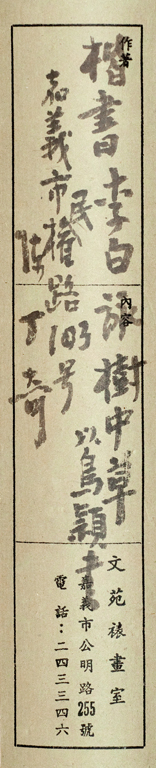 作者
楷書李白詠樹中草
以鳥穎書
嘉義市民權路103号
陳丁奇
內容
文苑裱畫室
嘉義市公明路255號
電話：二四三三四六